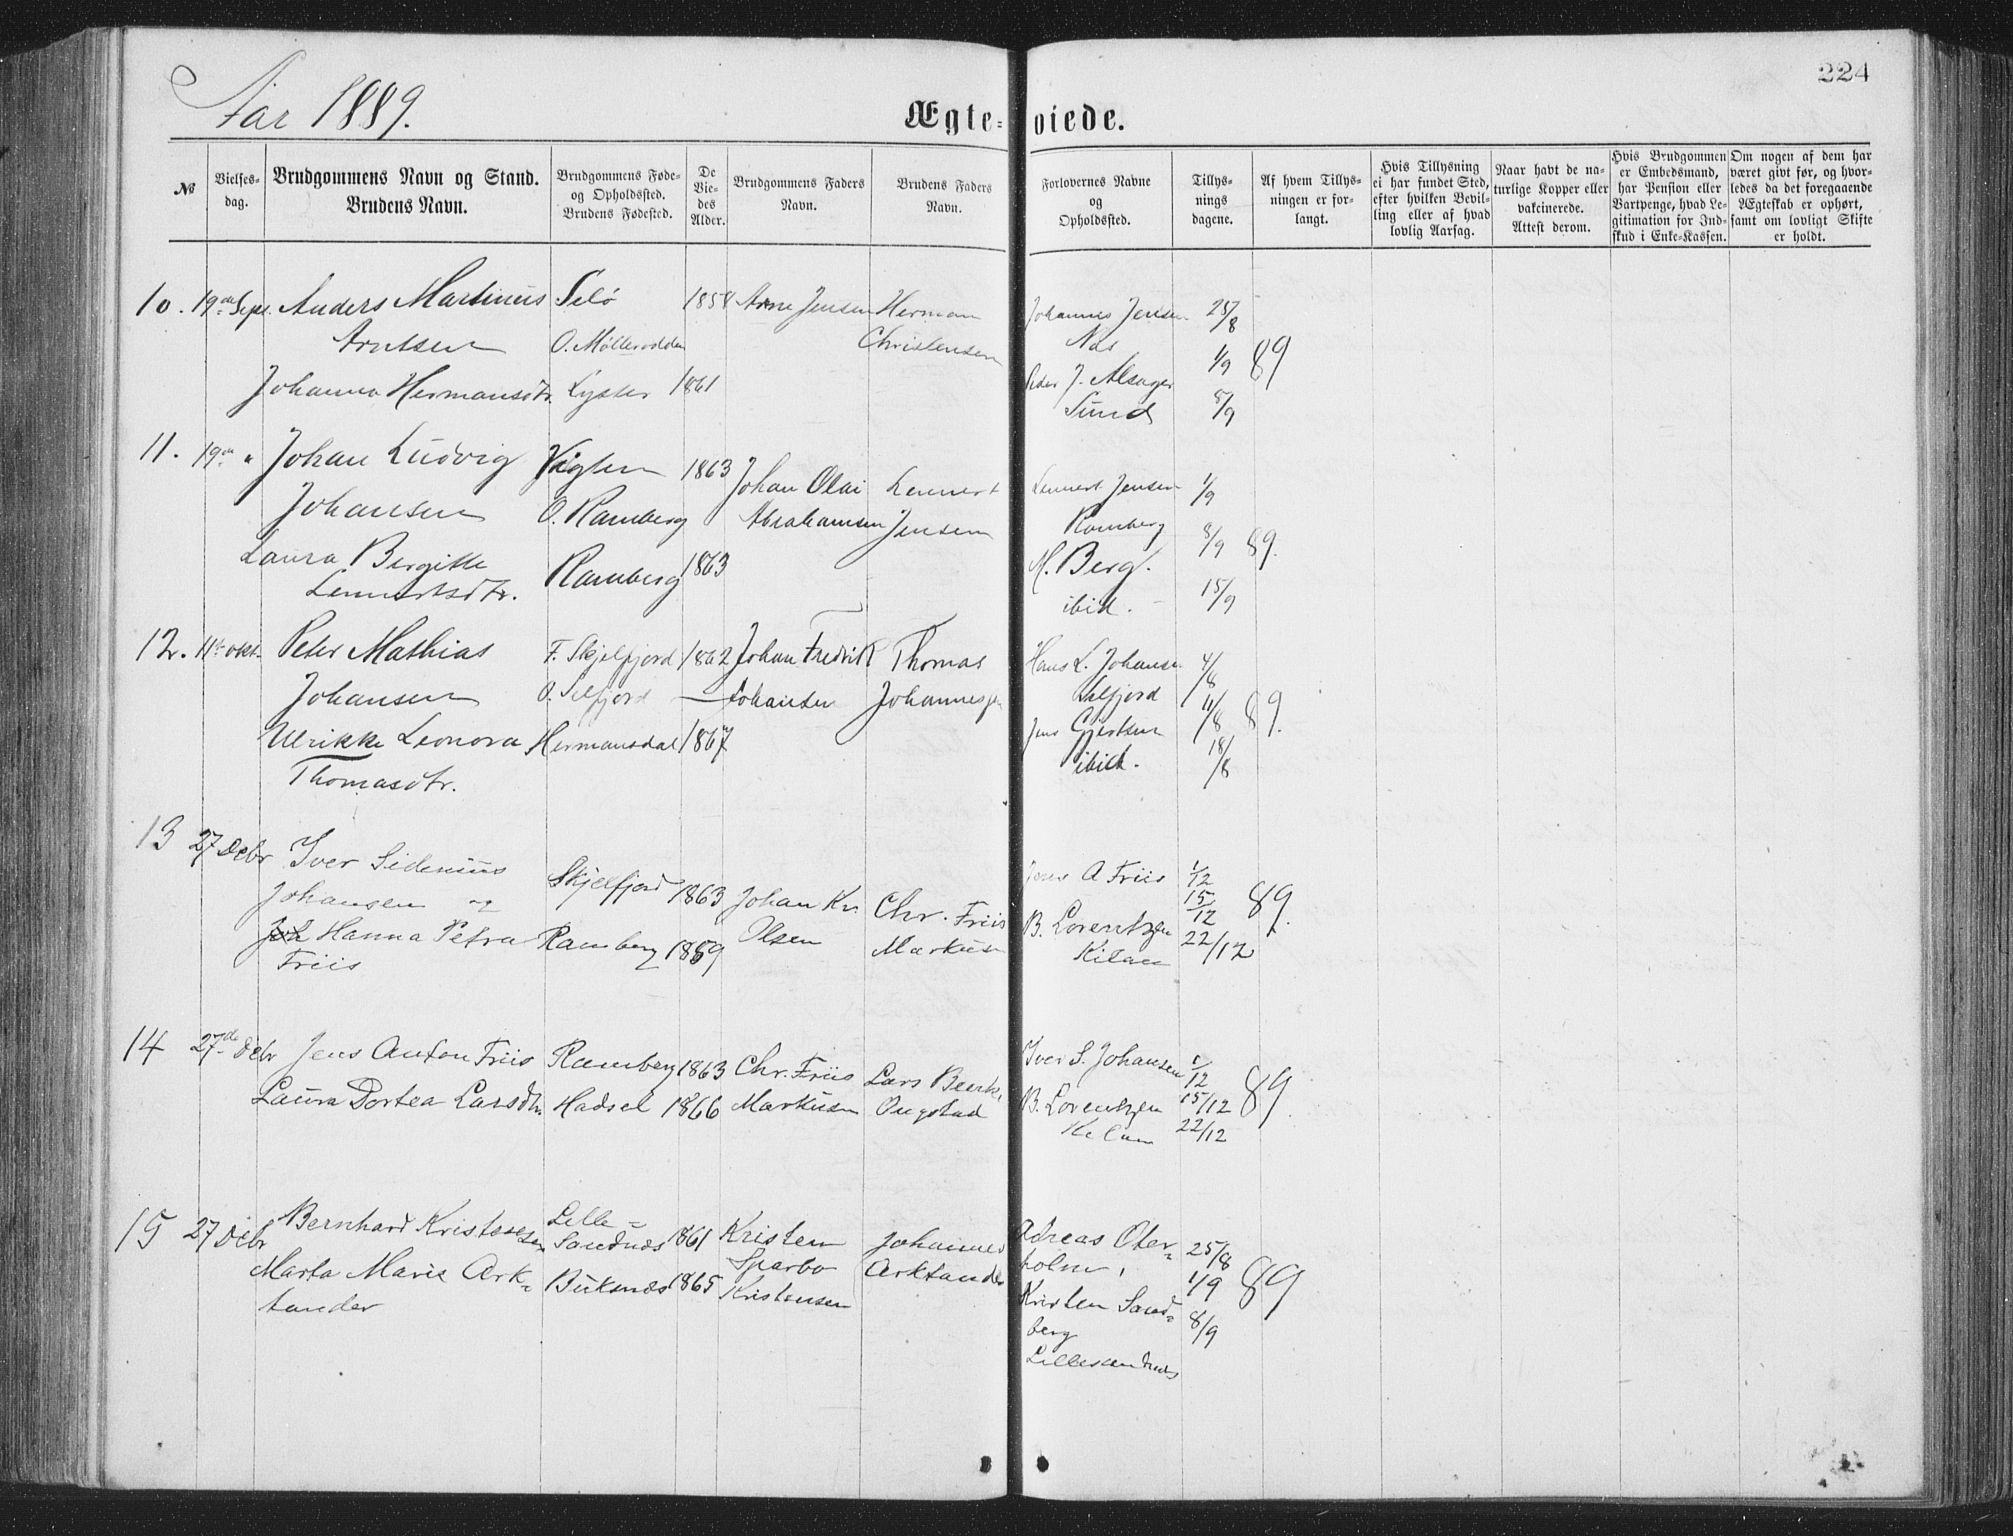 224
Aar 1889.
Ægteviede.
№
Vielses-
dag.
Brudgommens Navn og Stand.
Brudens Navn.
Brudgommens Føde-
og Opholdssted.
Brudens Fødested.
De
Vie-
des
Alder.
Brudgommens Faders
Navn.
Brudens Faders
Navn.
Forlovernes Navne
og
Opholdssted.
Tillys-
nings
dagene.
Af hvem Tillys-
ningen er for-
langt.
Hvis Tillysning
ei har fundet Sted,
efter hvilken Bevil-
ling eller af hvad
lovlig Aarsag.
Naar havt de na-
turlige Kopper eller
vakcinerede.
Attest derom.
Hvis Brudgommen
er Embedsmand,
har Pension eller
Vartpenge, hvad Le-
gitimation for Ind-
skud i Enke-Kassen.
Om nogen af dem har
været givt før, og hvor-
ledes da det foregaaende
Ægteskab er ophørt,
samt om lovligt Skifte
er holdt.
10. 19de Sept. Anders Martinus Selö 1858 Arne Jensen Herman Johannes Jensen 25/8
Arntsen O. Möllerodden Christensen Næs 1/9 89
Johanna Hermansdtr. Lyster 1861 Peder J. Alsager
Sund 8/9
11. 19de " Johan Ludvig Vigten 1863 Johan Olai Lennert Lennert Jensen 1/9
Johansen O. Ramberg Abrahamsen Jensen Ramberg 8/9 89.
Laura Bergitte Ramberg 1863 M. Berg.
Lennertsdtr. ibid. 15/9
12. 11te okt. Peter Mathias F. Skjelfjord 1862 Johan Fredrik Thomas Hans L. Johansen 4/8
Johansen O. Selfjord Johansen Johannessen Selfjord 11/8 89.
Ulrikke Leonora Hermansdal 1867 Jens Gjertsen
Thomasdtr. ibid. 18/8
13 27 Debr Iver Sidenius Skjelfjord 1863 Johan Kr. Chr. Friis Jens A Friis 1/12
Johansen og Olsen Markusen 15/12 89.
Joh Hanna Petra Ramberg 1859 B. Lorentzen 22/12
Friis Kilan
14 27de Debr Jens Anton Friis Ramberg 1863 Chr. Friis Lars Iver S. Johansen 1/12
Laura Dortea Larsdtr Hadsel 1866 Markusen Ongstad B. Lorentzen 15/12 89.
22/12
15 27 Debr Bernhard Kristensen Lille- 1861 Kristen Johannes Adreas Oter- 25/8
Sandnæs Sparbo Arktander holm, 1/9 89
Marta Marie Ark- Buksnæs 1865 Kristensen Kristen Sand- 8/9
tander berg
Lillesandnæs